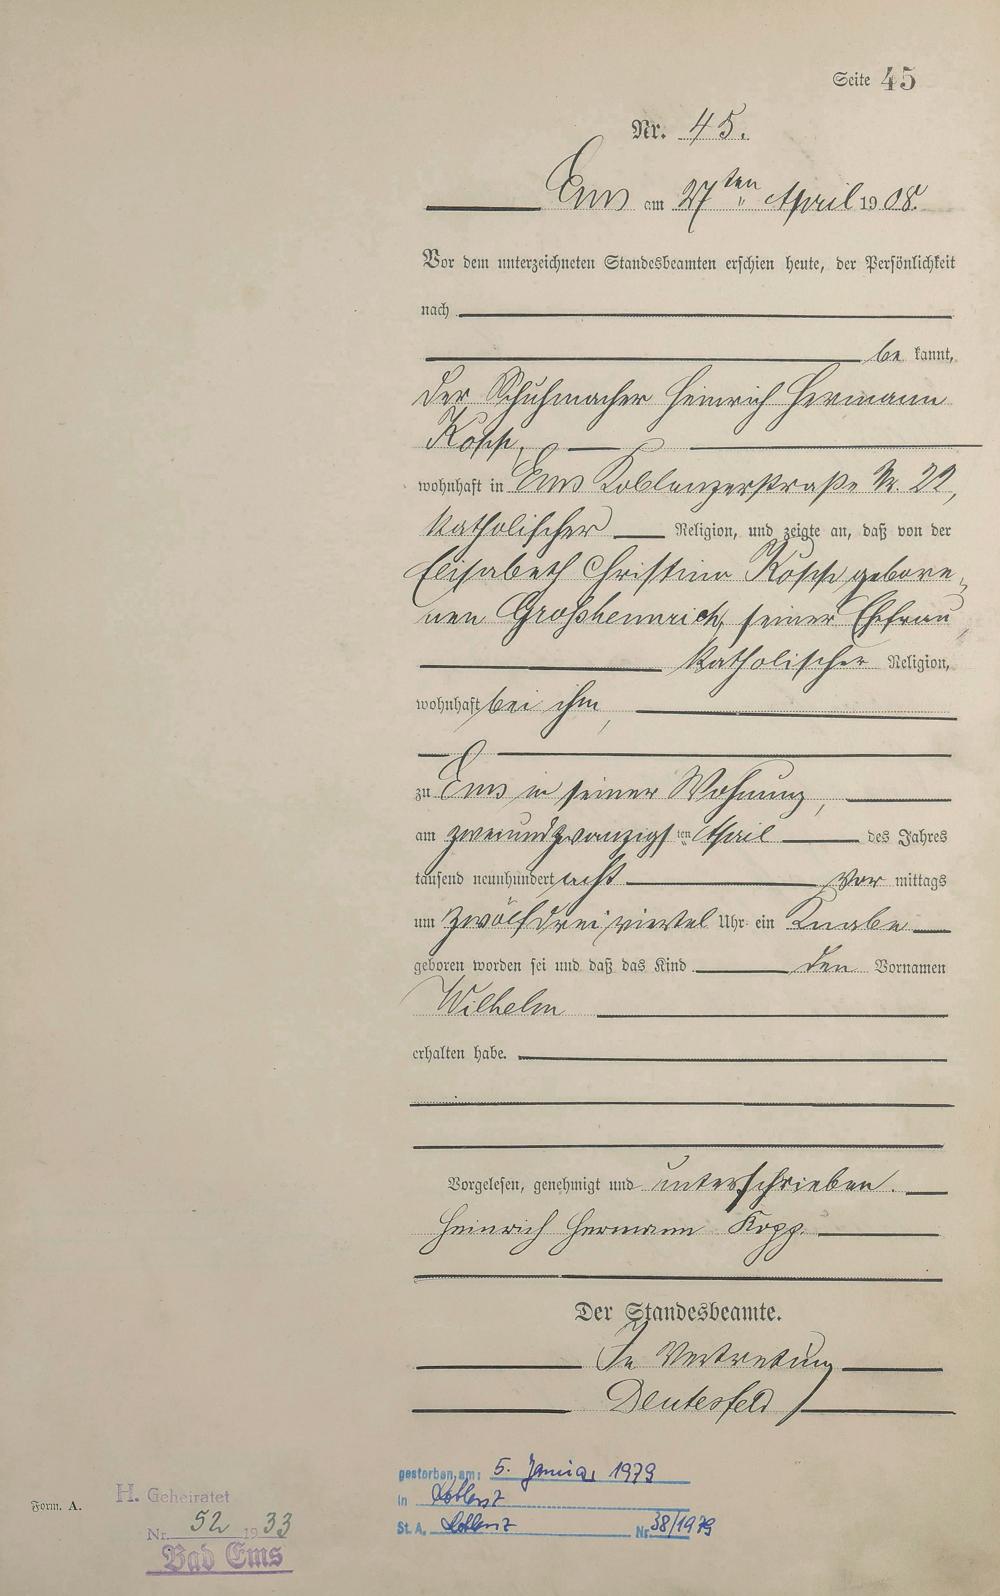 Seite 45
Nr. 45.
Ems am 27ten April 1908.
Vor dem unterzeichneten Standesbeamten erschien heute, der Persönlichkeit
nach
be kannt,
der Schuhmacher Heinrich Hermann
Kopp,
wohnhaft in Ems Koblenzerstraße Nr. 22,
katholischer Religion, und zeigte an, daß von der
Elisabeth Christina Kopp gebore-
nen Großhennrich, seiner Ehefrau,
katholischer Religion,
wohnhaft bei ihm,
zu Ems in seiner Wohnung,
am zweiundzwanzigsten April des Jahres
tausend neunhundert acht Vor mittags
um zwölf drei viertel Uhr ein Knabe
geboren worden sei und daß das Kind den Vornamen
Wilhelm
erhalten habe.
Vorgelesen, genehmigt und unterschrieben.
Heinrich Hermann Kopp.
Der Standesbeamte.
In Vertretung
Deutesfeld
gestorben am: 5. Januar 1979
in Koblenz
St. A. Koblenz Nr. 38/1979
Form. A.
H. Geheiratet
Nr. 52 1933
Bad Ems